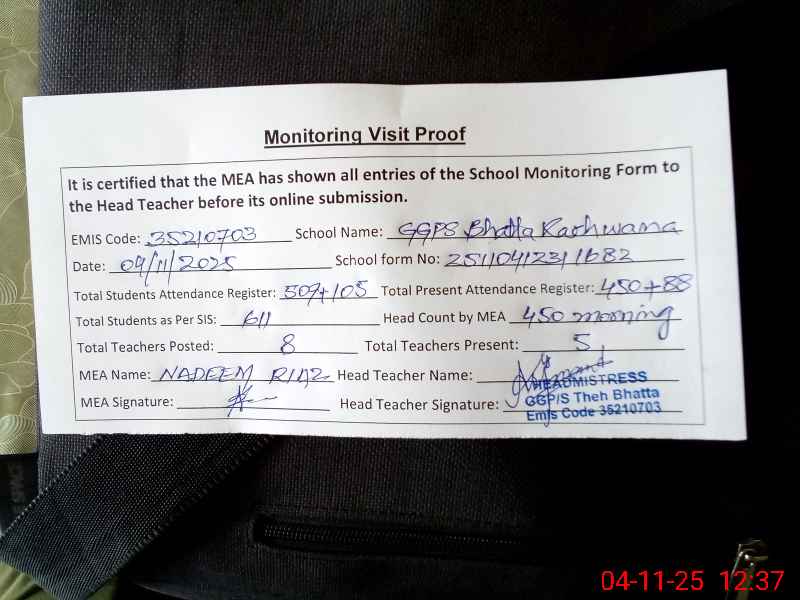 Monitoring Visit Proof
It is certified that the MEA has shown all entries of the School Monitoring Form to
the Head Teacher before its online submission.
EMIS Code: 35210703 School Name: GGPS Bhatta Kashwana
Date: 04/11/2025 School form No: 2511041231682
Total Students Attendance Register: 507+105 Total Present Attendance Register: 450+88
Total Students as Per SIS: 611 Head Count by MEA 450 morning
Total Teachers Posted: 8 Total Teachers Present: 5
MEA Name: NADEEM RIAZ Head Teacher Name:
HEADMISTRESS
MEA Signature: Head Teacher Signature:
GGP/S Theh Bhatta
Emis Code 35210703
04-11-25 12:37